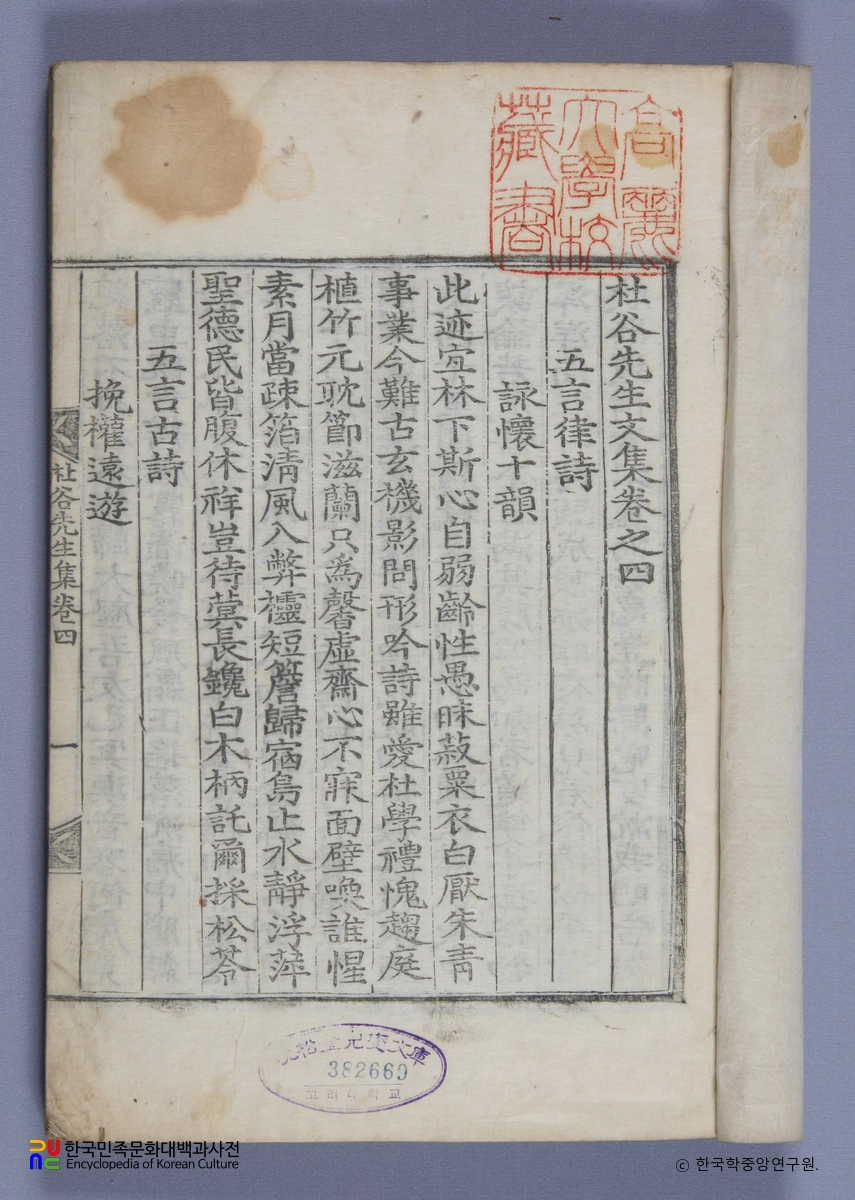 高麗
大學校
藏書
社谷先生文集卷之四
五言律詩
詠懷十韻
此迹宜林下斯心自弱齡性愚昧菽粟衣白厭朱青
事業今難古玄機影問形吟詩雖愛杜學禮愧趨庭
植竹元耽節滋蘭只爲馨虛齋心不寐面壁喚誰惺
素月當疎箔淸風入弊欞短簷歸宿鳥止水靜浮萍
聖德民皆腹休祥豈待蓂長鑱白木柄託爾採松苓
五言古詩
挽權遠遊
社谷先生集卷四
一
松 兌 文庫
382669
고려대학교
한국민족문화대백과사전
Encyclopedia of Korean Culture
© 한국학중앙연구원.